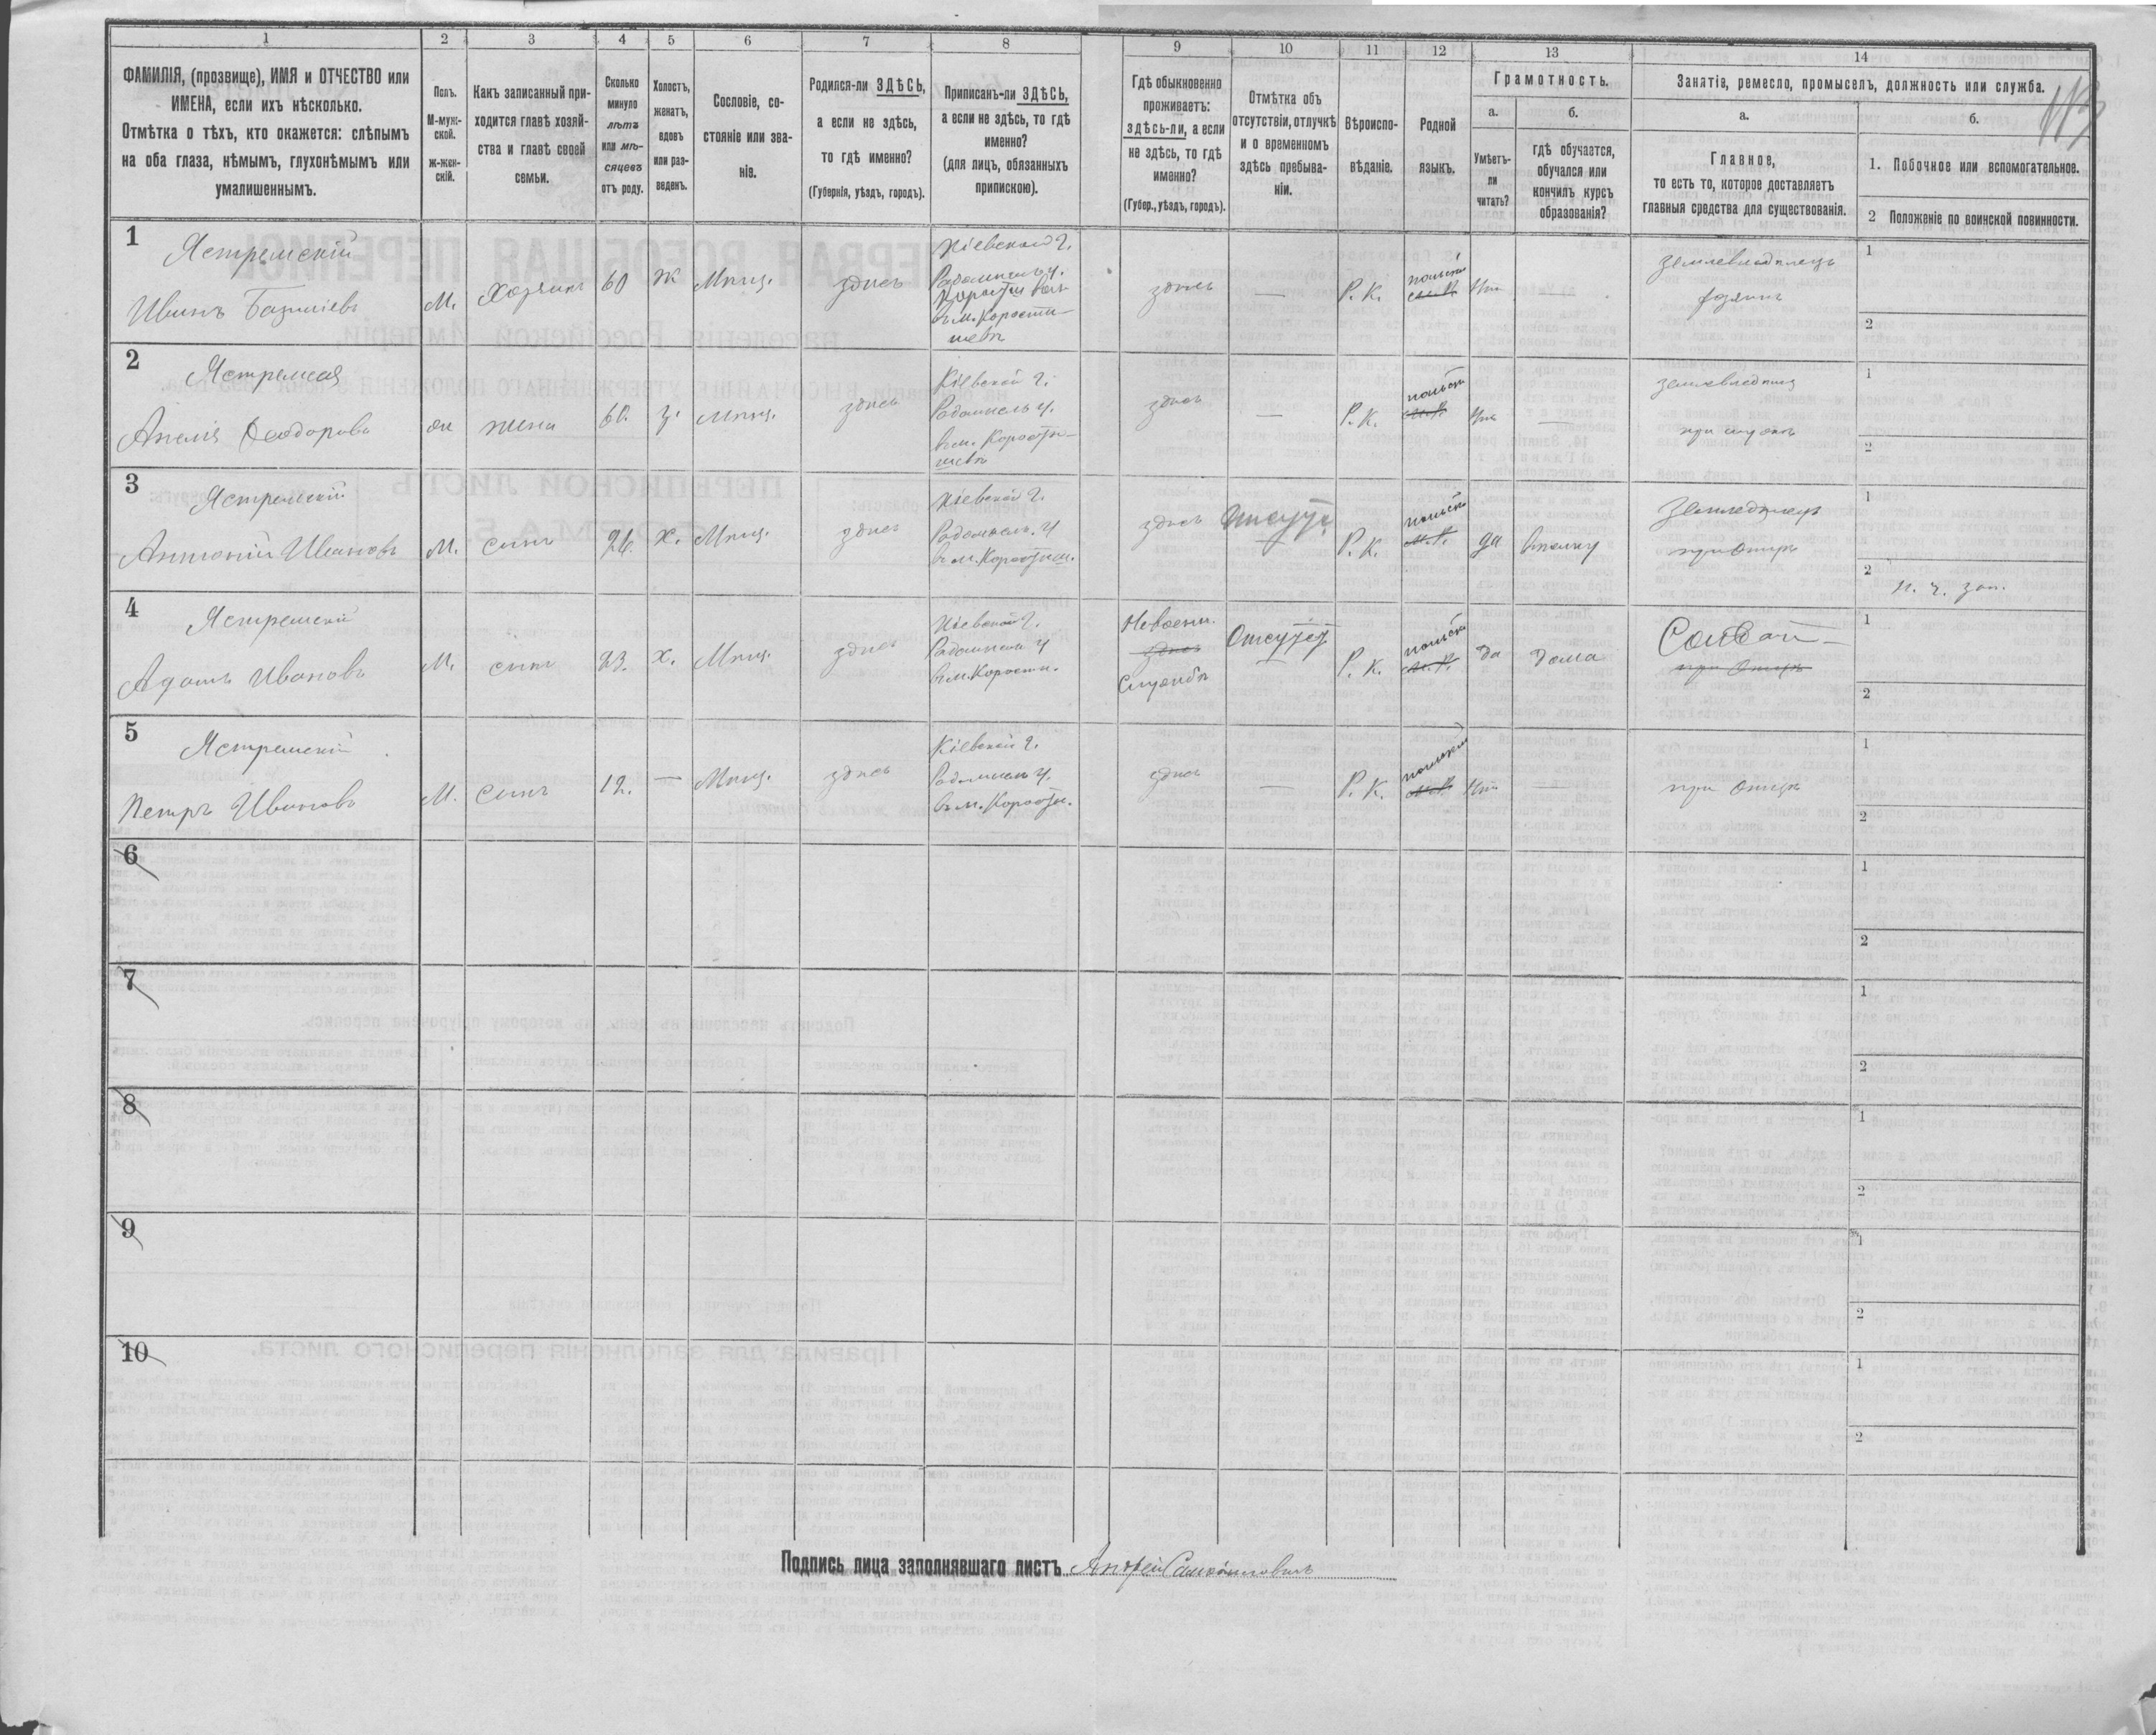 1 2 3 4 5 6 7 8 9 10 11 12 13 14
ФАМИЛІЯ, (прозвище), ИМЯ и ОТЧЕСТВО или
ИМЕНА, если ихъ нѣсколько.
Отмѣтка о тѣхъ, кто окажется: слѣпымъ
на оба глаза, нѣмымъ, глухонѣмымъ или
умалишеннымъ.
Полъ.
М-муж-
ской.
ж-жен-
скій.
Какъ записанный при-
ходится главѣ хозяй-
ства и главѣ своей
семьи.
Сколько
минуло
лѣтъ
или мѣ-
сяцевъ
отъ роду.
Холостъ,
женатъ,
вдовъ
или раз-
веденъ.
Сословіе, со-
стояніе или зва-
ніе.
Родился-ли ЗДѢСЬ,
а если не здѣсь,
то гдѣ именно?
(Губернія, уѣздъ, городъ).
Приписанъ-ли ЗДѢСЬ,
а если не здѣсь, то гдѣ
именно?
(для лицъ, обязанныхъ
припискою).
Гдѣ обыкновенно
проживаетъ:
здѣсь-ли, а если
не здѣсь, то гдѣ
именно?
(Губер., уѣздъ, городъ).
Отмѣтка объ
отсутствіи, отлучкѣ
и о временномъ
здѣсь пребыва-
ніи.
Вѣроиспо-
вѣданіе.
Родной
языкъ.
Грамотность.
а.
Умѣетъ-
ли
читать?
б.
гдѣ обучается,
обучался или
кончилъ курсъ
образованія?
Занятіе, ремесло, промыселъ, должность или служба.
113
а.
Главное,
то есть то, которое доставляетъ
главныя средства для существованія.
б.
1. Побочное или вспомогательное.
2 Положеніе по воинской повинности.
1
Ястремскій
Иванъ Базиліевъ
М.
Хозяинъ
60
Ж
Мѣщ.
здѣсь
Кіевской г.
Радомысль у.
въ м. Корости-
шевѣ
здѣсь
—
Р. К.
польскій
нѣт
—
Землевладѣлецъ
хозяинъ
1
2
2
Ястремская
Анеля Феодорова
ж
жена
60.
з.
Мѣщ.
здѣсь
Кіевской г.
Радомысль у.
въ м. Корости-
шевѣ
здѣсь
—
Р. К.
польскій
нѣт
—
при мужѣ
1
2
3
Ястремскій
Антоній Ивановъ
М.
сынъ
26.
х.
Мѣщ.
здѣсь
Кіевской г.
Радомысль. у
въ м. Коростиш.
здѣсь
Р. К.
польскій
да
въ полку
при Отцѣ
1
2
н. ч. зап.
4
Ястремскій
Адамъ Ивановъ
М.
сынъ
23.
х.
Мѣщ.
здѣсь
Кіевской г.
Радомысль у
въ м. Корости.
На воен.
здѣсь
Службѣ
Отсутст.
Р. К.
польскій
да
дома
Солдат
при Отцѣ
1
2
5
Ястремскій
Петръ Ивановъ
М.
Сынъ
12.
—
Мѣщ.
здѣсь
Кіевской г.
Радомысль у.
въ м. Корости.
здѣсь
—
Р. К.
польскій
нѣт
—
при отцѣ
1
2
6
1
2
7
1
2
8
1
2
9
1
2
10
1
2
Подпись лица заполнявшаго листъ Андрей